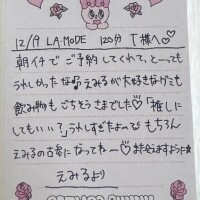 12/19 LA・MODE 120分 T様へ♡
朝イチで ご予約してくれて、とーっても
うれしかったな♪ えみるが大好きなグミも
飲み物も ごちそうさまでした♡「推しに
してもいい?」うれしすぎたよ〜 もちろん
えみるの古参になってね〜♡
えみるより